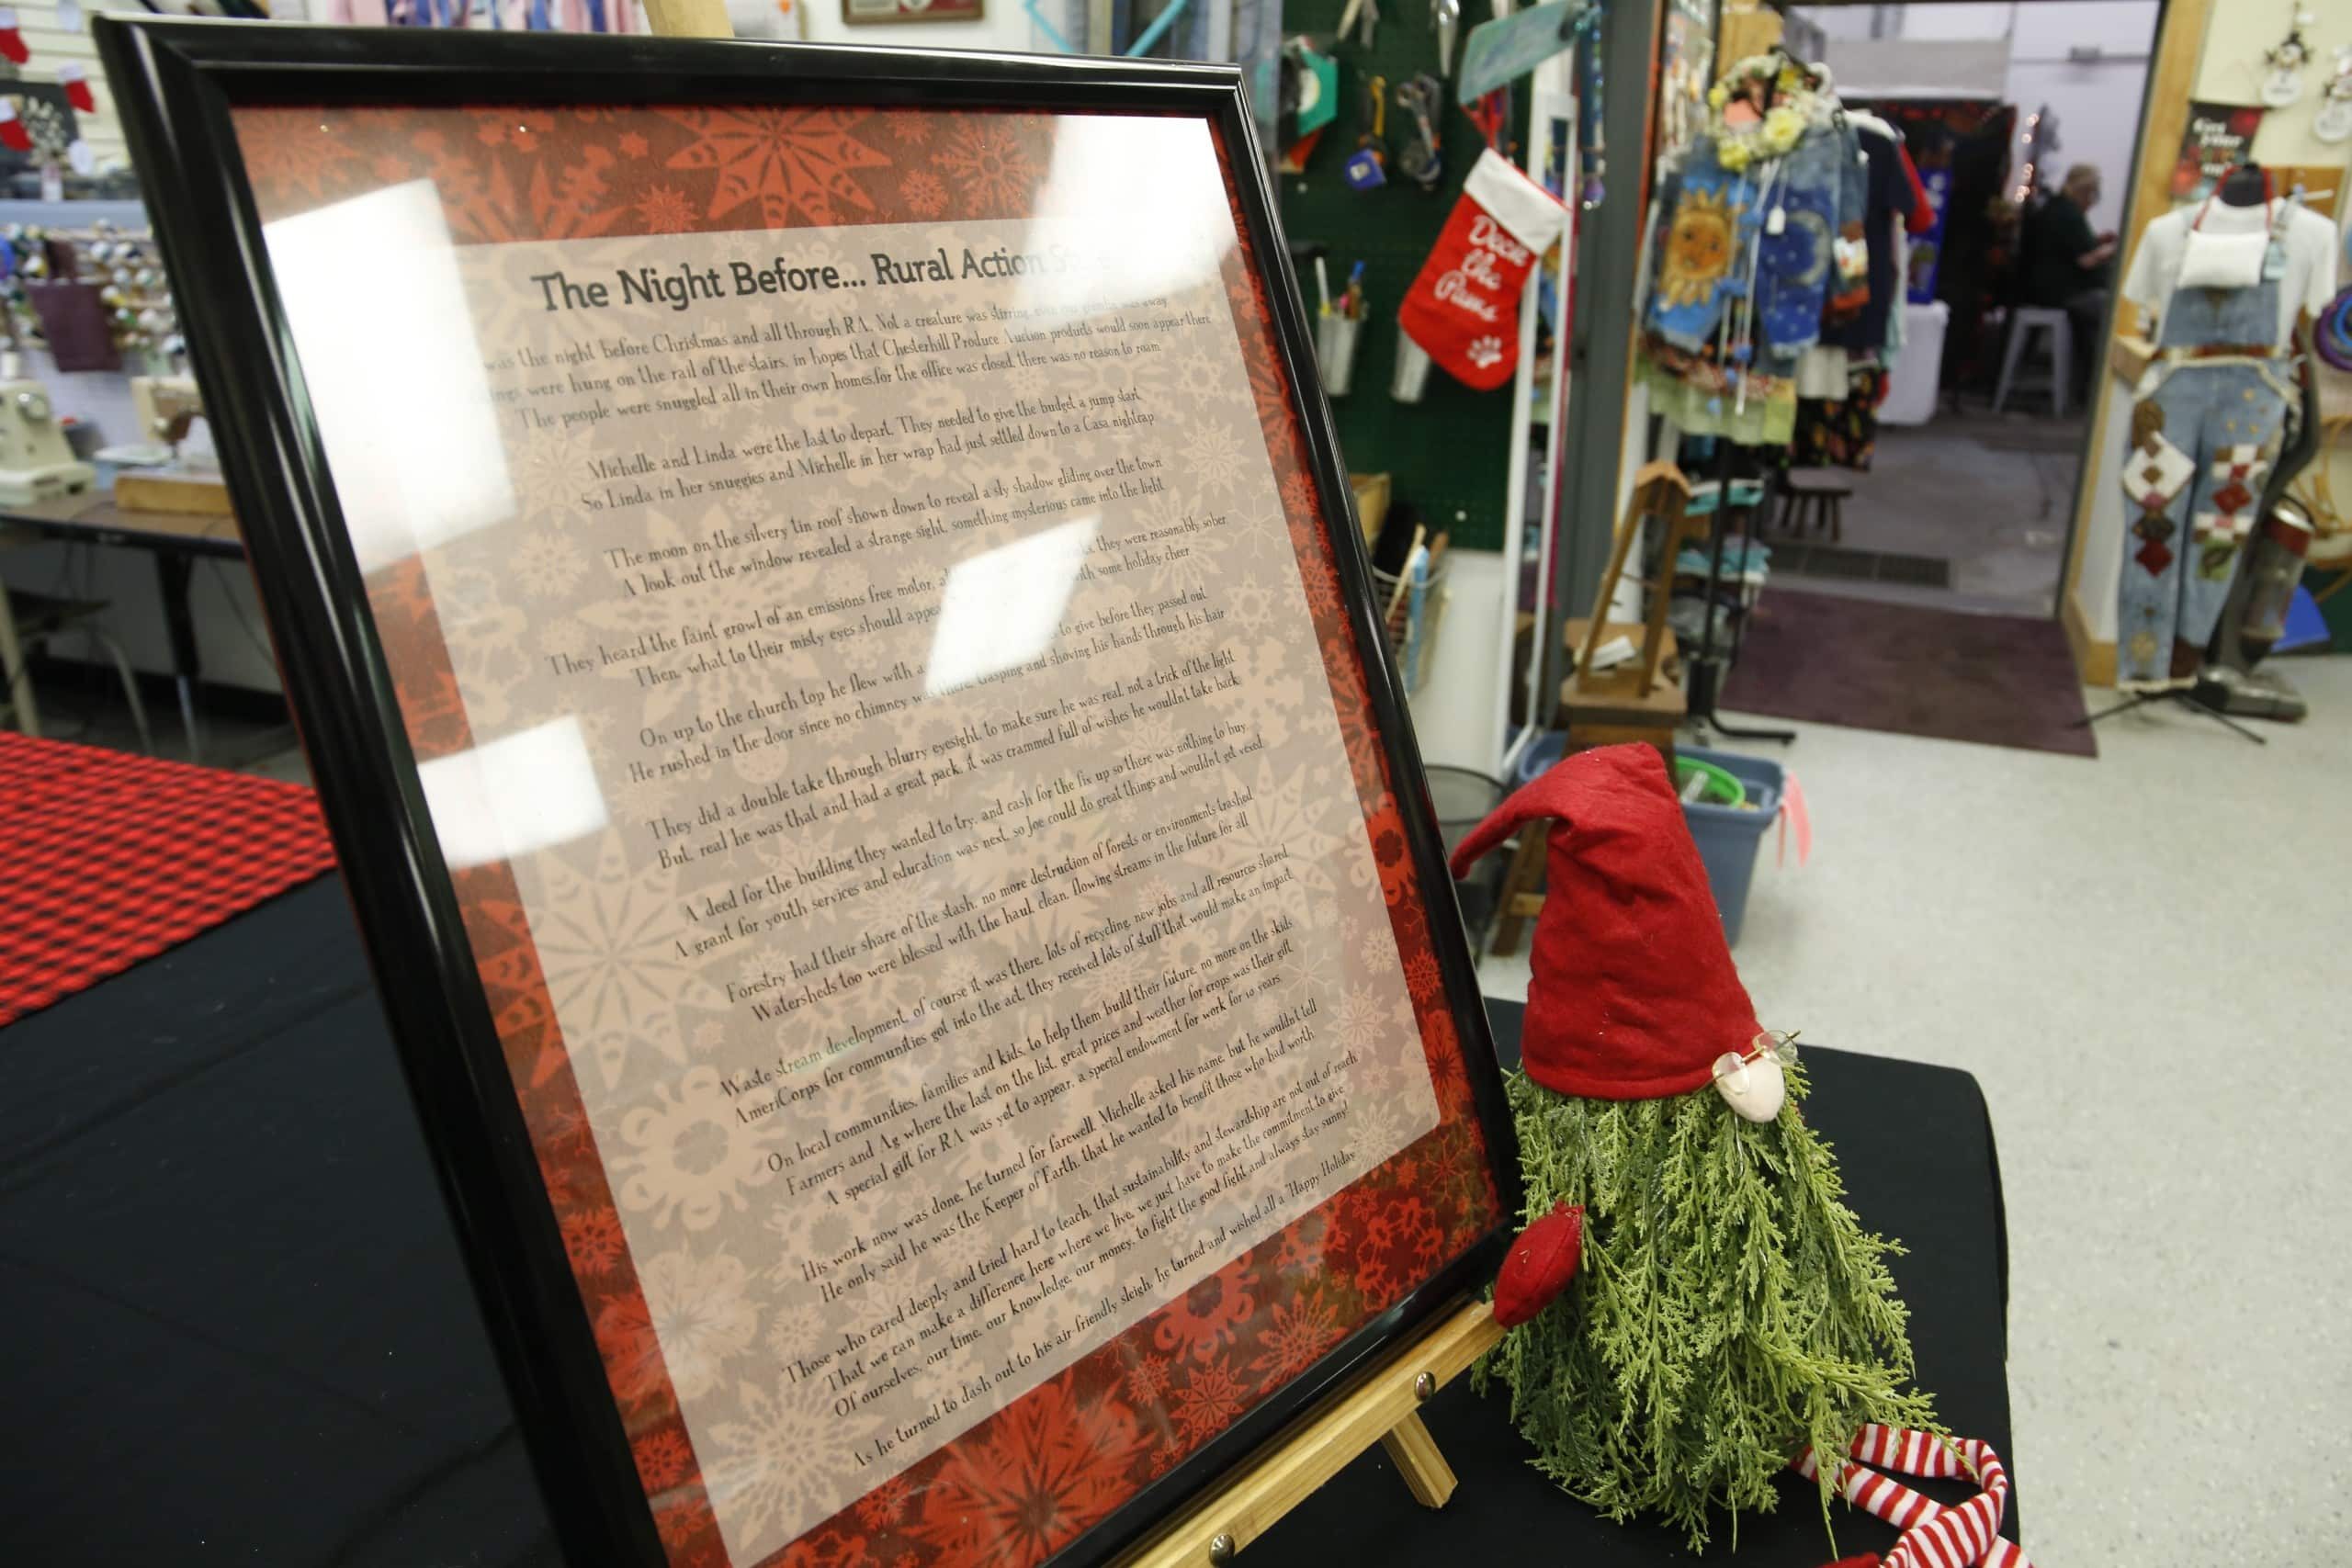 The Night Before... Rural Action
was the night before Christmas and all through RA. Not a creature was stirring, even our printer was away
were hung on the rail of the stairs, in hopes that Chesterhill Produce Auction products would soon appear there
The people were snuggled all in their own homes,for the office was closed, there was no reason to roam.
Michelle and Linda were the last to depart. They needed to give the budget a jump start
So Linda in her snuggies and Michelle in her wrap had just settled down to a Casa nightcap
The moon on the silvery tin roof shown down to reveal a sly shadow gliding over the town
A look out the window revealed a strange sight, something mysterious came into the light
They heard the faint growl of an emissions free motor, they were reasonably sober
Then, what to their misty eyes should with some holiday cheer
On up to the church top he flew with a to give before they passed out
He rushed in the door since no chimney was there, Gasping and shoving his hands through his hair
They did a double take through blurry eyesight, to make sure he was real, not a trick of the light
But, real he was that and had a great pack, it was crammed full of wishes he wouldn't take back
A deed for the building they wanted to try, and cash for the fix up so there was nothing to buy
A grant for youth services and education was next, so Joe could do great things and wouldn't get vexed
Forestry had their share of the stash, no more destruction of forests or environments trashed
Watersheds too were blessed with the haul, clean, flowing streams in the future for all
Waste stream development, of course it was there, lots of recycling, new jobs and all resources shared
AmeriCorps for communities got into the act, they received lots of stuff that would make an impact
On local communities, families and kids, to help them build their future, no more on the skids
Farmers and Ag where the last on the list, great prices and weather for crops was their gift
A special gift for RA was yet to appear, a special endowment for work for 10 years
His work now was done, he turned for farewell, Michelle asked his name, but he wouldn't tell
He only said he was the Keeper of Earth, that he wanted to benefit those who had worth
Those who cared deeply and tried hard to teach, that sustainability and stewardship are not out of reach
That we can make a difference here where we live, we just have to make the commitment to give
Of ourselves, our time, our knowledge, our money, to fight the good fight and always stay sunny!
As he turned to dash out to his air-friendly sleigh, he turned and wished all a "Happy Holiday
Deck
the
Paws